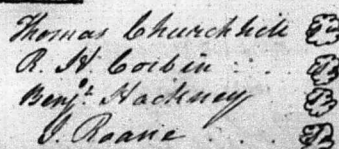 Thomas Churchhill
R. H. Corbin
Benjn. Hackney
J. Roane